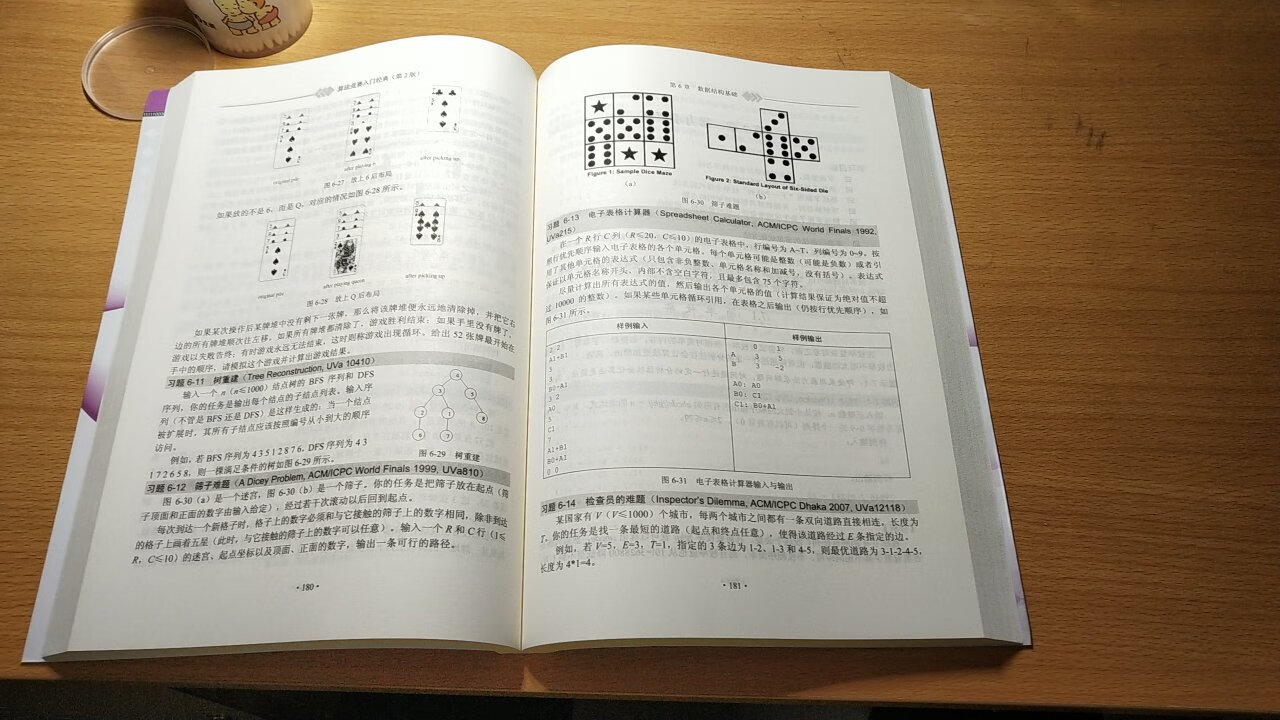 算法竞赛入门经典（第2版）
original pile
after playing 6
after picking up
图 6-27 放上 6 后布局
如果放的不是 6，而是 Q，对应的情况如图 6-28 所示。
original pile
after playing queen
after picking up
图 6-28 放上 Q 后布局
如果某次操作后某牌堆中没有剩下一张牌，那么将该牌堆便永远地清除掉，并把它右
边的所有牌堆顺次往左移。如果所有牌堆都清除了，游戏胜利结束；如果手里没有牌了，
游戏以失败告终；有时游戏永远无法结束，这时则称游戏出现循环。给出 52 张牌最开始在
手中的顺序，请模拟这个游戏并计算出游戏结果。
习题 6-11 树重建（Tree Reconstruction, UVa 10410）
输入一个 n（n≤1000）结点树的 BFS 序列和 DFS
序列，你的任务是输出每个结点的子结点列表。输入序
列（不管是 BFS 还是 DFS）是这样生成的：当一个结点
被扩展时，其所有子结点应该按照编号从小到大的顺序
访问。
例如，若 BFS 序列为 4 3 5 1 2 8 7 6，DFS 序列为 4 3
1 7 2 6 5 8，则一棵满足条件的树如图 6-29 所示。
4
3
5
2
1
8
6
7
图 6-29 树重建
习题 6-12 筛子难题（A Dicey Problem, ACM/ICPC World Finals 1999, UVa810）
图 6-30（a）是一个迷宫，图 6-30（b）是一个筛子。你的任务是把筛子放在起点（筛
子顶面和正面的数字由输入给定），经过若干次滚动以后回到起点。
每次到达一个新格子时，格子上的数字必须和与它接触的筛子上的数字相同，除非到达
的格子上画着五星（此时，与它接触的筛子上的数字可以任意）。输入一个 R 和 C 行（1≤
R，C≤10）的迷宫、起点坐标以及顶面、正面的数字，输出一条可行的路径。
· 180 ·
第 6 章 数据结构基础
Figure 1: Sample Dice Maze
Figure 2: Standard Layout of Six-Sided Die
（a）
（b）
图 6-30 筛子难题
习题 6-13 电子表格计算器（Spreadsheet Calculator, ACM/ICPC World Finals 1992,
UVa215）
在一个 R 行 C 列（R≤20，C≤10）的电子表格中，行编号为 A~T，列编号为 0~9。按
照行优先顺序输入电子表格的各个单元格。每个单元格可能是整数（可能是负数）或者引
用了其他单元格的表达式（只包含非负整数、单元格名称和加减号，没有括号）。表达式
保证以单元格名称开头，内部不含空白字符，且最多包含 75 个字符。
尽量计算出所有表达式的值，然后输出各个单元格的值（计算结果保证为绝对值不超
过 10000 的整数）。如果某些单元格循环引用，在表格之后输出（仍按行优先顺序），如
图 6-31 所示。
样例输入
2 2
A1+B1
5
3
B0-A1
3 2
A0
5
C1
7
A1+B1
B0+A1
0 0
样例输出
0 1
A 3 5
B 3 -2
A0: A0
B0: C1
C1: B0+A1
图 6-31 电子表格计算器输入与输出
习题 6-14 检查员的难题（Inspector's Dilemma, ACM/ICPC Dhaka 2007, UVa12118）
某国家有 V（V≤1000）个城市，每两个城市之间都有一条双向道路直接相连，长度为
T。你的任务是找一条最短的道路（起点和终点任意），使得该道路经过 E 条指定的边。
例如，若 V=5，E=3，T=1，指定的 3 条边为 1-2、1-3 和 4-5，则最优道路为 3-1-2-4-5，
长度为 4*1=4。
· 181 ·